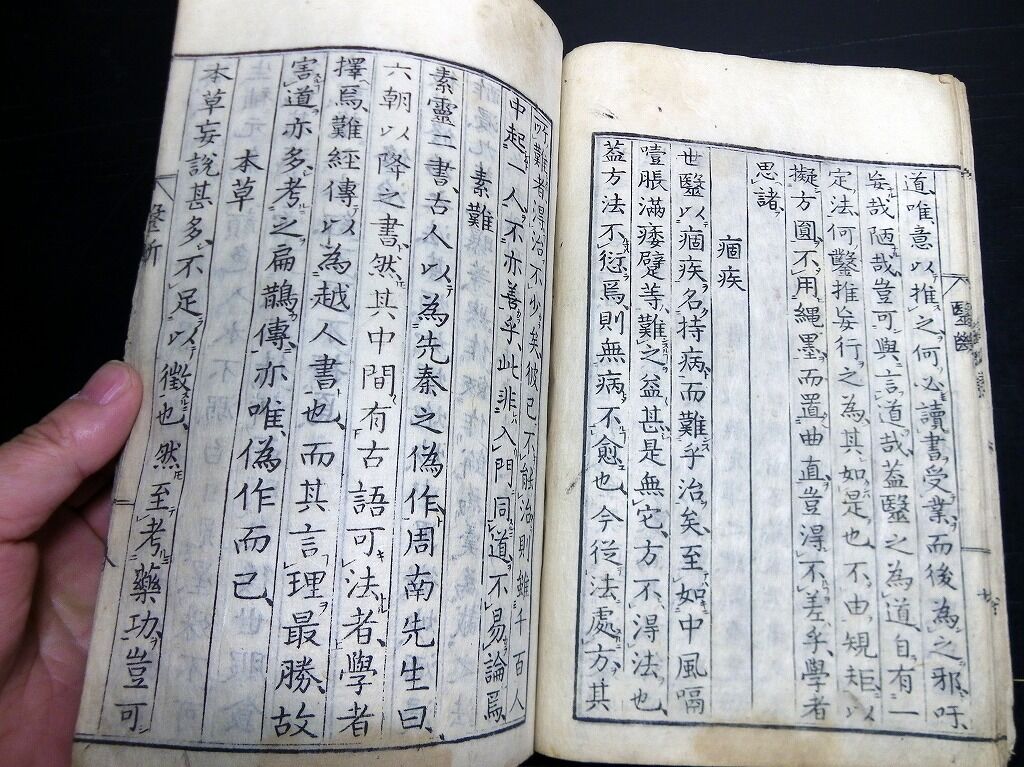 道、唯意以推之、何必讀書、受業而後為之邪、吁、
妄哉陋哉、豈可與言道哉、蓋醫之為道、自有一
定法、何鑿推妄行之為、其如是也、不由規矩、以
擬方圓、不用繩墨、而置曲直、豈得不差乎、學者
思諸、
痼疾
世醫以痼疾名持病、而難乎治矣、至如中風嗝
噎脹滿痿躄等、難之益甚、是無它、方不得法也、
蓋方法不愆焉、則無病不愈也、今從法處方、其
所難者、得治不少矣、彼已不能治、則雖千百人
中起一人、不亦善乎、此非入門同道、不易論焉、
素難
素靈二書、古人以為先秦之偽作、周南先生曰、
六朝以降之書、然其中間有古語可法者、學者
擇焉、難經傳以為越人書也、而其言理最勝、故
害道亦多、考之扁鵲傳、亦唯偽作而已、
本草
本草妄說甚多、不足以徵也、然至考藥功、豈可
醫斷
七